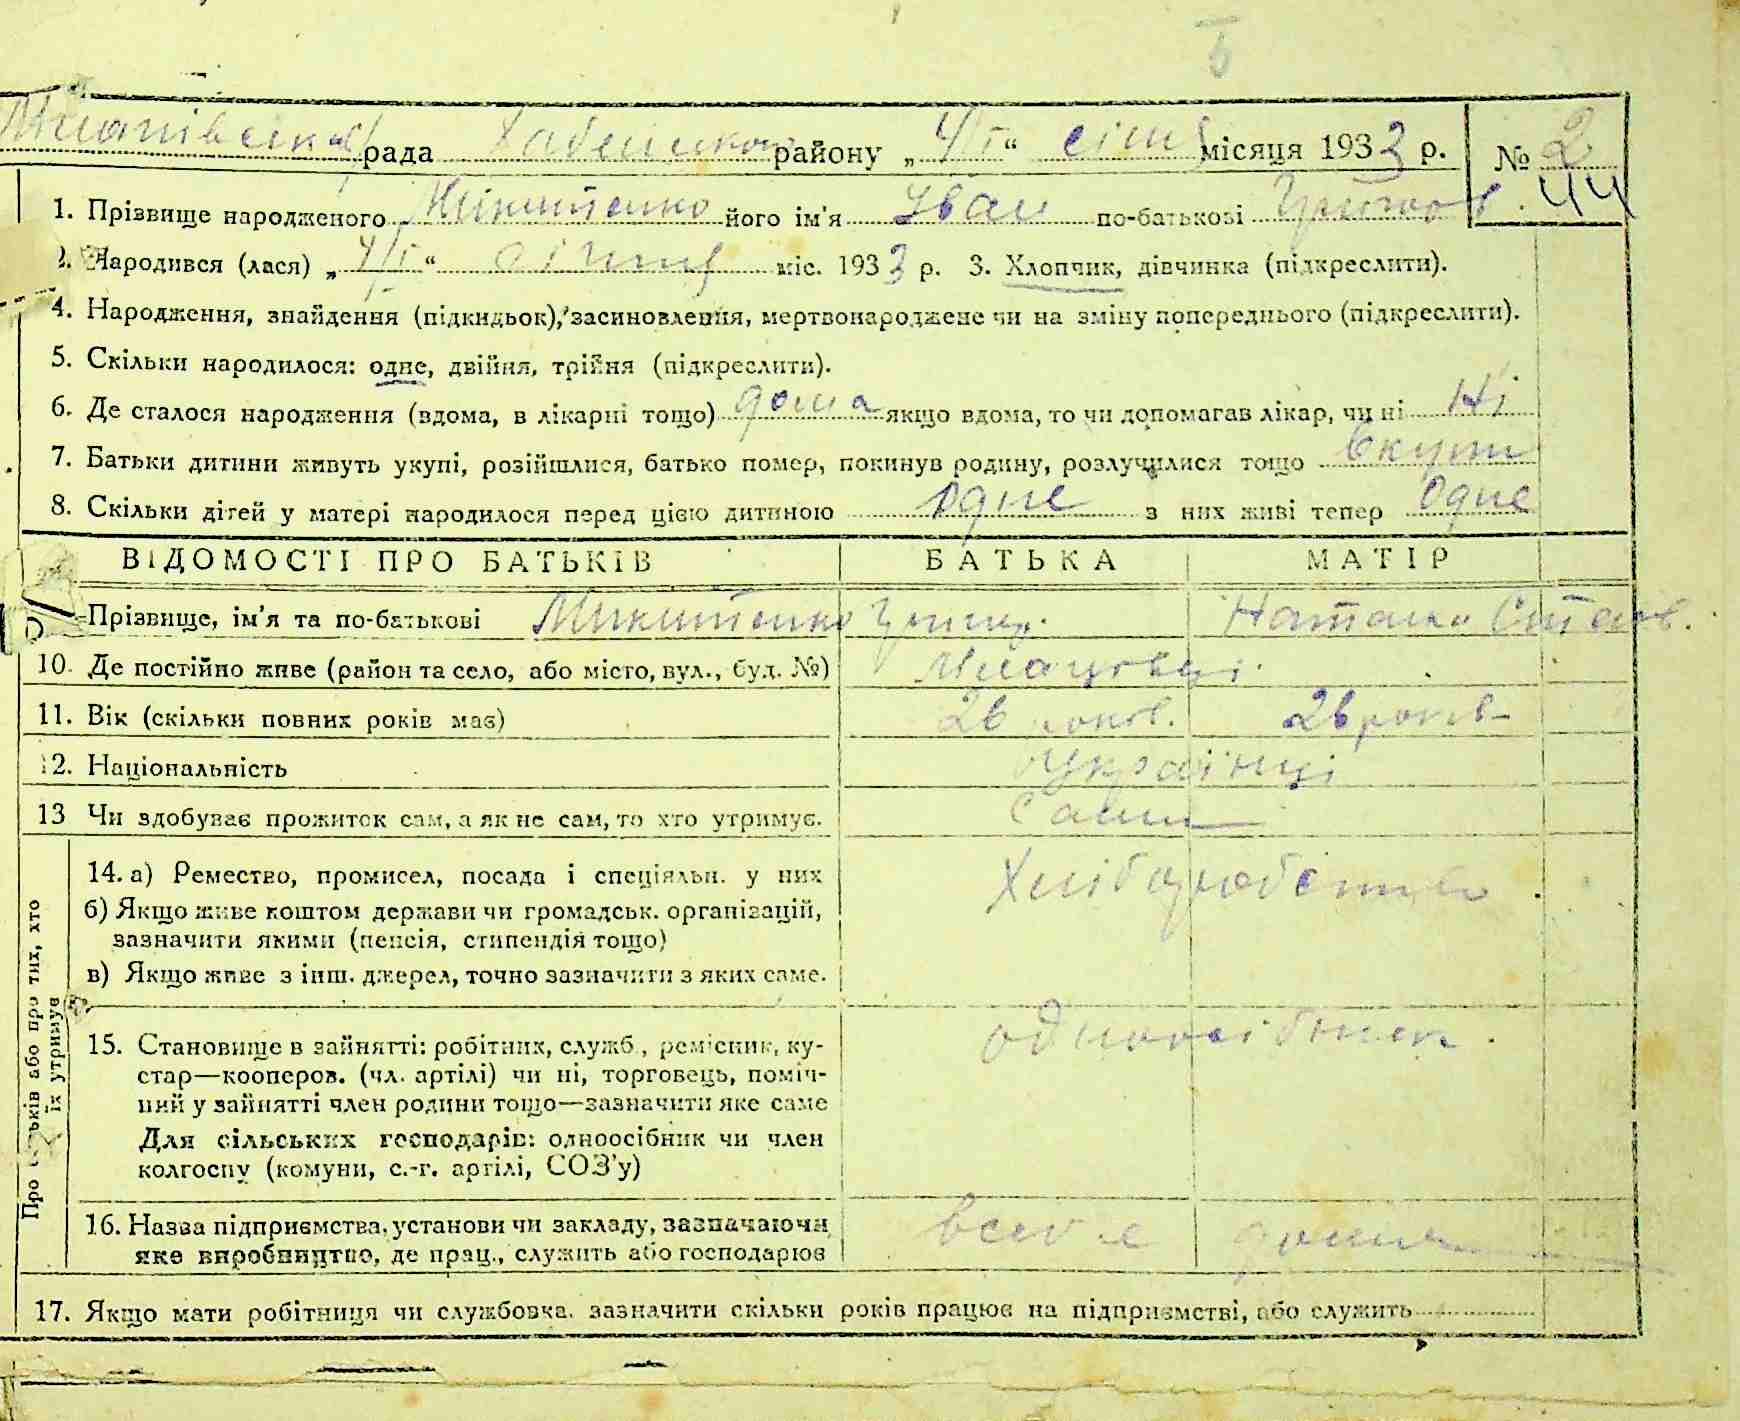 рада району „4/I“ січн місяця 1933 р. № 2
44
1. Прізвище народженого Микитенко його ім'я Іван по-батькові Григор
2. Народився (лася) „4/I“ січня міс. 1933 р. 3. Хлопчик, дівчинка (підкреслити).
4. Народження, знайдення (підкидьок), засиновлення, мертвонароджене чи на зміну попереднього (підкреслити).
5. Скільки народилося: одне, двійня, трійня (підкреслити).
6. Де сталося народження (вдома, в лікарні тощо) дома якщо вдома, то чи допомагав лікар, чи ні Ні
7. Батьки дитини живуть укупі, розійшлися, батько помер, покинув родину, розлучилися тощо вкупі
8. Скільки дітей у матері народилося перед цією дитиною одне з них живі тепер одне
ВІДОМОСТІ ПРО БАТЬКІВ БАТЬКА МАТІР
Прізвище, ім'я та по-батькові Микитенко Григор. Наталка Степ
10. Де постійно живе (район та село, або місто, вул., буд. №)
11. Вік (скільки повних років має) 26 років. 26 років
12. Національність Українці
13 Чи здобуває прожиток сам, а як не сам, то хто утримує. Сами
Про батьків або про тих, хто їх утримує
14. а) Ремество, промисел, посада і спеціяльн. у них Хліборобство
б) Якщо живе коштом держави чи громадськ. організацій,
зазначити якими (пенсія, стипендія тощо)
в) Якщо живе з інш. джерел, точно зазначити з яких саме.
15. Становище в зайнятті: робітник, служб., ремісник, ку- одноосібник.
стар—кооперов. (чл. артілі) чи ні, торговець, поміч-
ний у зайнятті член родини тощо—зазначити яке саме
Для сільських господарів: одноосібник чи член
колгоспу (комуни, с.-г. артілі, СОЗ'у)
16. Назва підприємства, установи чи закладу, зазначаючи
яке виробництво, де прац., служить або господарює в себе дома
17. Якщо мати робітниця чи службовка, зазначити скільки років працює на підприємстві, або служить